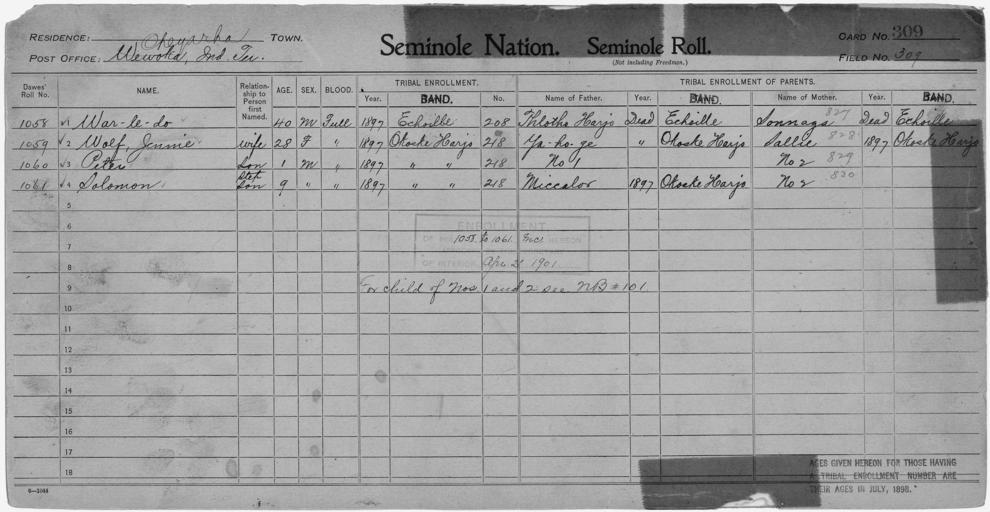 RESIDENCE: Cheyarha TOWN.
POST OFFICE: Wewoka, Ind. Ter.
Seminole Nation. Seminole Roll.
(Not including Freedmen.)
CARD NO. 309
FIELD NO. 309
Dawes' Roll No. NAME. Relationship to Person first Named. AGE. SEX. BLOOD. TRIBAL ENROLLMENT. Year. BAND. No. TRIBAL ENROLLMENT OF PARENTS. Name of Father. Year. BAND. Name of Mother. Year. BAND.
1058 1 War-le-do 40 M Full 1897 Echoille 208 Thlotho Harjo Dead Echoille Sonnaga 827 Dead Echoille
1059 2 Wolf, Jennie wife 28 F " 1897 Okoske Harjo 218 Ya-ho-ge " Okoske Harjo Sallie 828 1897 Okoske Harjo
1060 3 Peter Son 1 M " 1897 " " 218 No 1 No 2 829
1061 4 Solomon Step Son 9 " " 1897 " " 218 Miccalor 1897 Okoske Harjo No 2 830
5
6 ENROLLMENT
7 OF HEREON
1058 to 1061 Inc.
8 OF INTERIOR Apr. 2, 1901
9 For child of Nos. 1 and 2 see NB # 101.
10
11
12
13
14
15
16
17
18
AGES GIVEN HEREON FOR THOSE HAVING
A TRIBAL ENROLLMENT NUMBER ARE
THEIR AGES IN JULY, 1898.
6—1044